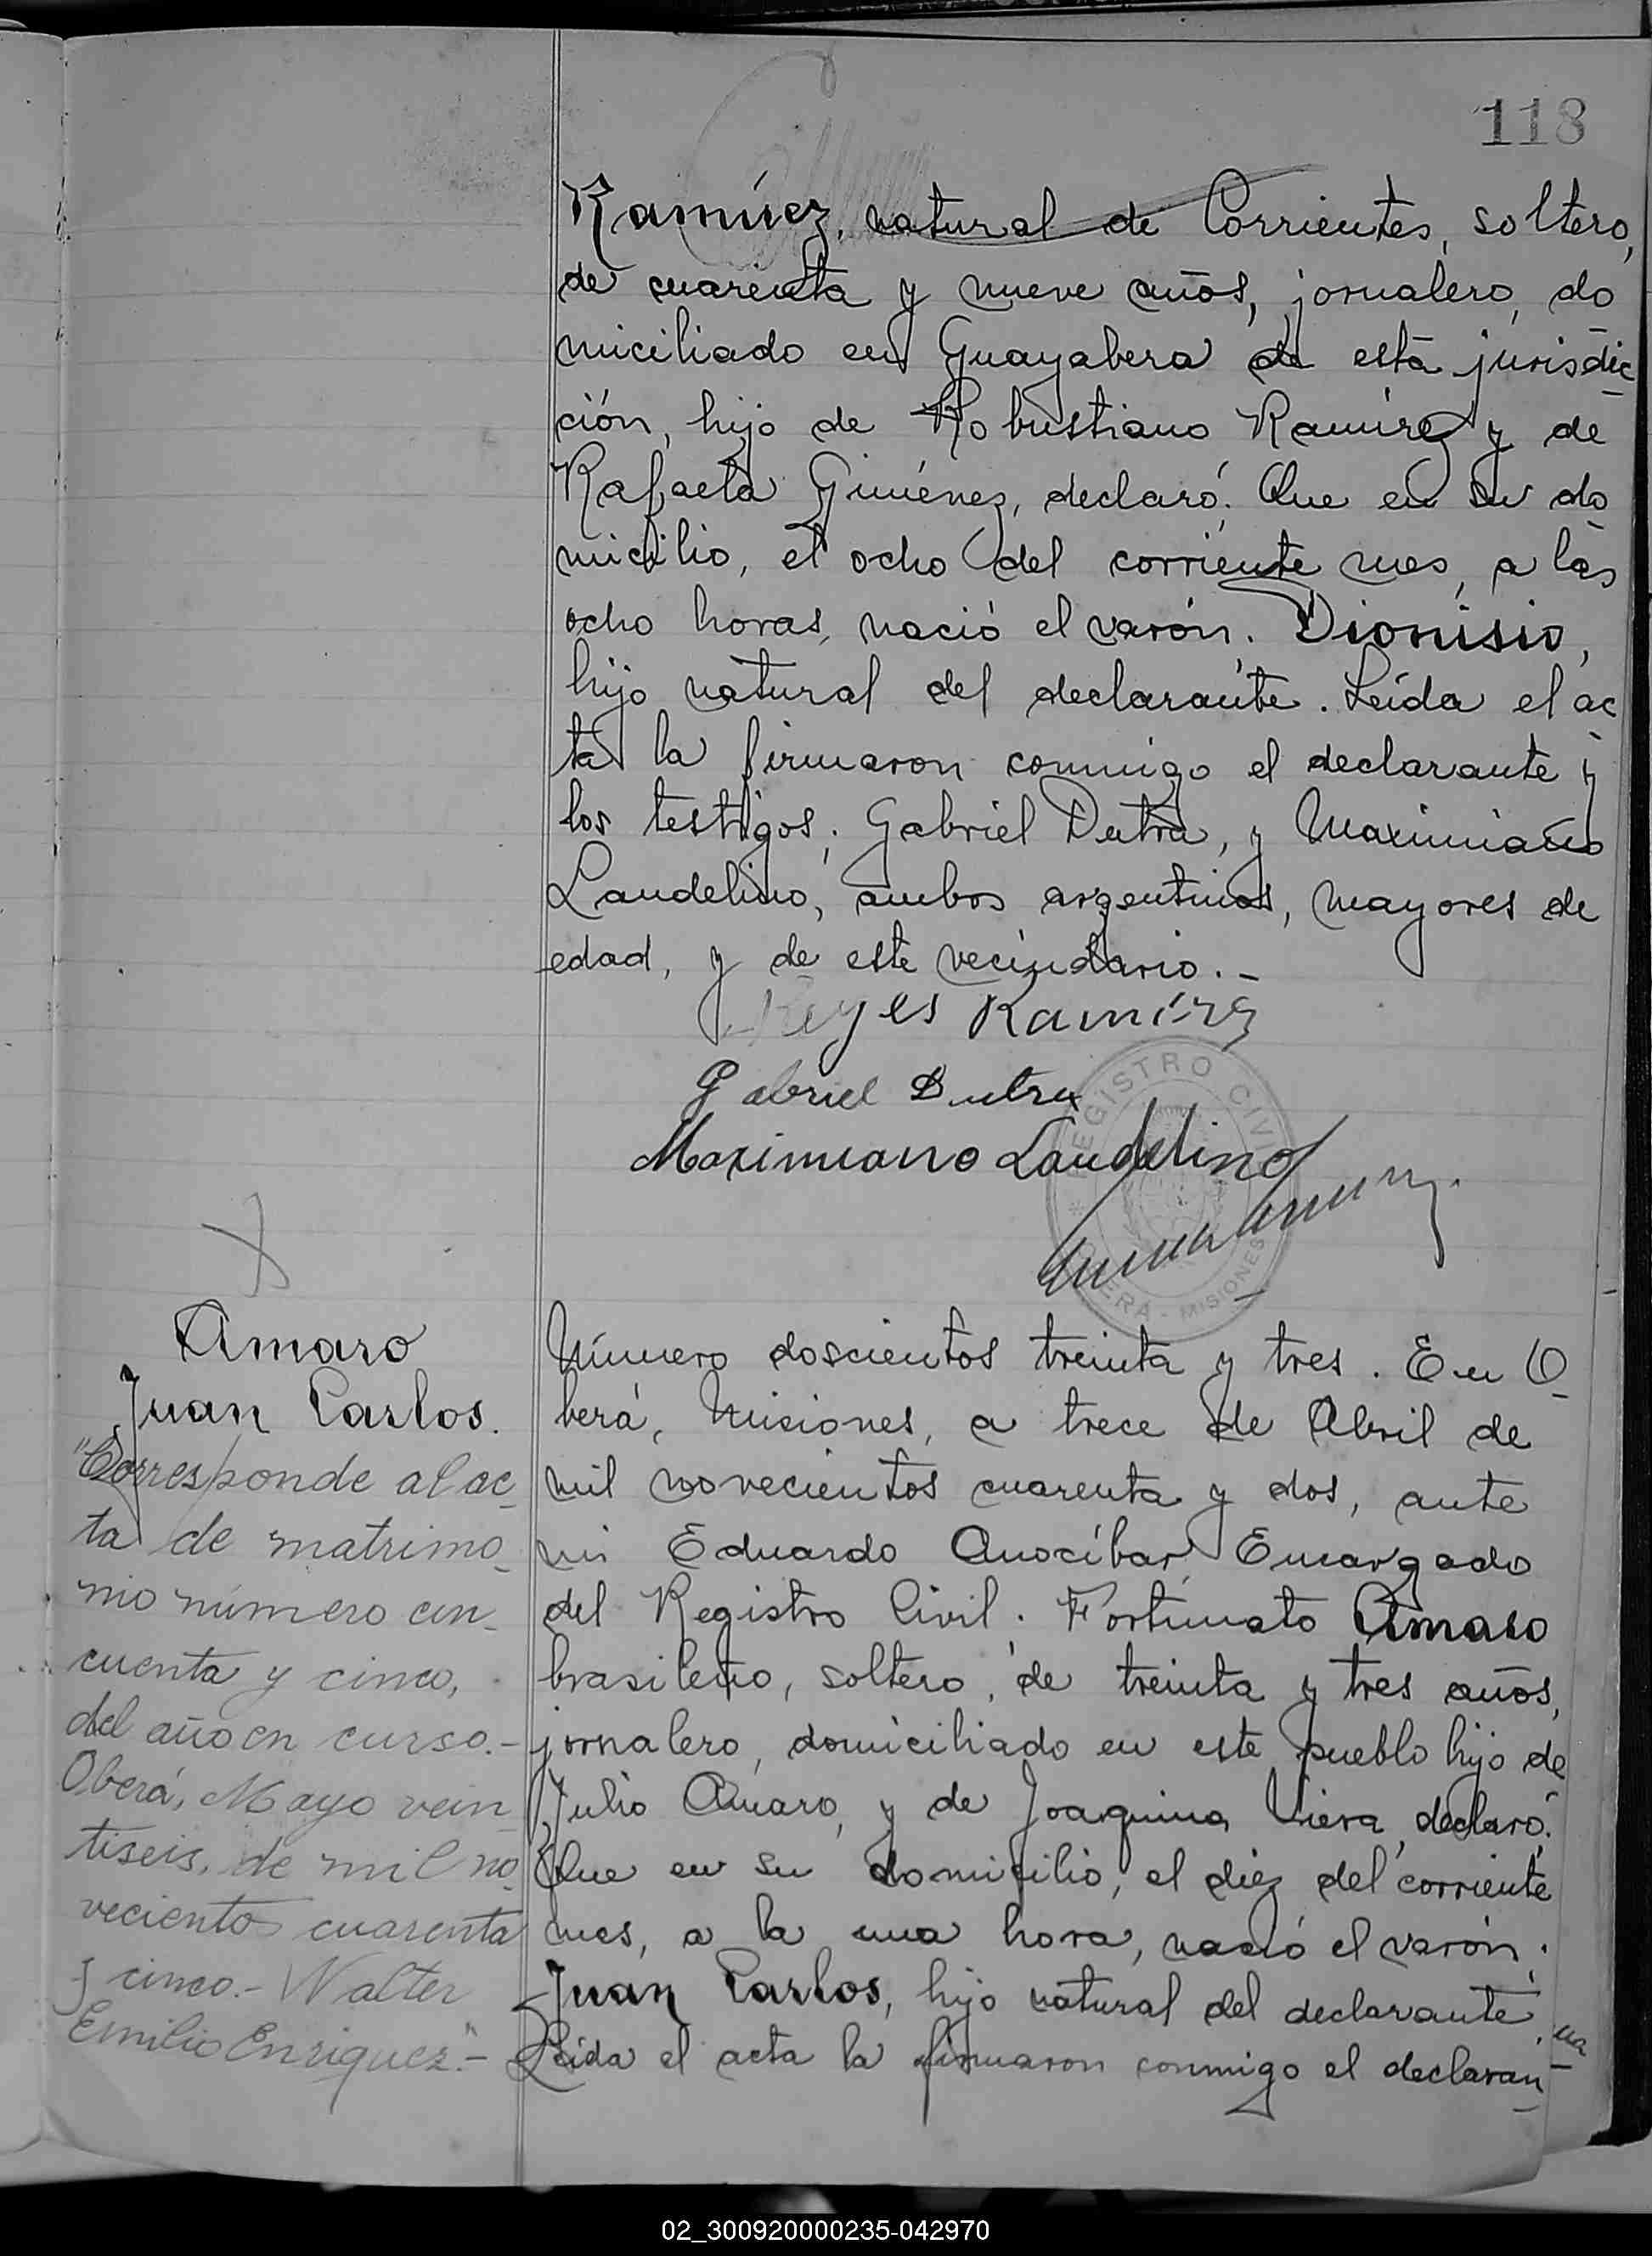 118
Ramírez, natural de Corrientes, soltero,
de cuarenta y nueve años, jornalero, do
miciliado en Guayabera de esta jurisdic-
ción, hijo de Robustiano Ramírez y de
Rafaela Giménez, declaró: Que en su do
micilio, el ocho del corriente mes, a las
ocho horas, nació el varón: Dionisio,
hijo natural del declarante. Leída el ac
ta la firmaron conmigo el declarante y
los testigos: Gabriel Dutra, y Maximiano
Laudelino, ambos argentinos, mayores de
edad, y de este vecindario.-
Reyes Ramírez
Gabriel Dutra
Maximiano Laudelino
REGISTRO CIVIL
OBERÁ - MISIONES
Amaro
Juan Carlos.
"Corresponde al ac-
ta de matrimo-
nio número cin-
cuenta y cinco,
del año en curso.-
Oberá, Mayo vein
tiseis, de mil no-
vecientos cuarenta
y cinco.- Walter
Emilio Enriquez".-
Número doscientos treinta y tres. En O-
berá, Misiones, a trece de Abril de
mil novecientos cuarenta y dos, ante
mi Eduardo Anocíbar, Encargado
del Registro Civil: Fortunato Amaro
brasileño, soltero, de treinta y tres años,
jornalero, domiciliado en este pueblo hijo de
Julio Amaro, y de Joaquina Viera, declaró:
Que en su domicilio, el diez del corriente
mes, a la una hora, nació el varón:
Juan Carlos, hijo natural del declarante.
Leída el acta la firmaron conmigo el declaran-
02_300920000235-042970